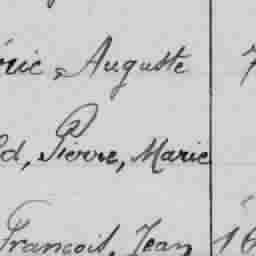 Auguste 7
d, Pierre, Marie
François, Jean 16